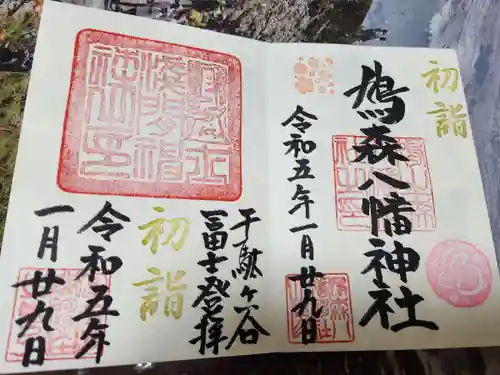 初詣
鳩森八幡神社
令和五年一月廿九日
于駄ヶ谷
冨士登拝
初詣
令和五年
一月廿九日